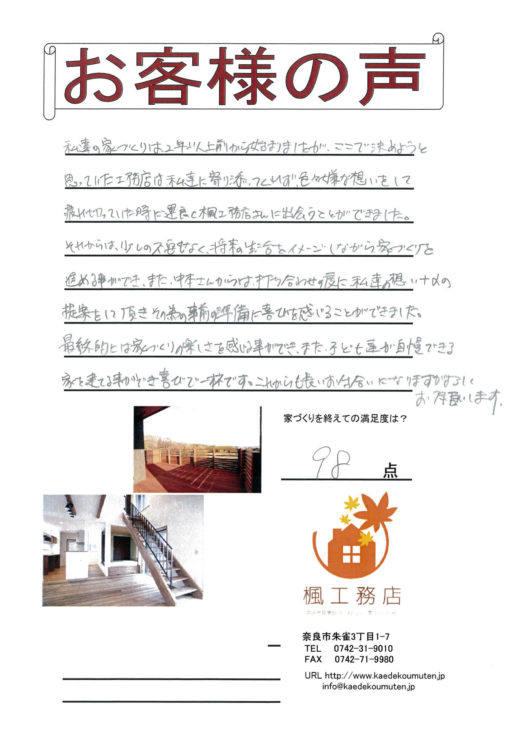 お客様の声
私達の家づくりは、2年以上前から始まりましたが、ここで決めようと
思っていた工務店は私達に寄り添ってくれず、色々嫌な想いをして
疲れ切っていた時に運良く楓工務店さんに出会うことができました。
それからは、少しの不安もなく、将来の生活をイメージしながら家づくりを
進める事ができ、また、中本さんからは、打ち合わせの度に私達の想い+αの
提案をして頂きその為の事前の準備に喜びを感じることができました。
最終的には家づくりの楽しさを感じる事ができ、また、子ども達が自慢できる
家を建てる事ができ喜びで一杯です。これからも長いお付合いになりますがよろしく
お願いします。
家づくりを終えての満足度は？
98 点
楓工務店
奈良市朱雀3丁目1-7
TEL 0742-31-9010
FAX 0742-71-9980
URL http://www.kaedekoumuten.jp
info@kaedekoumuten.jp